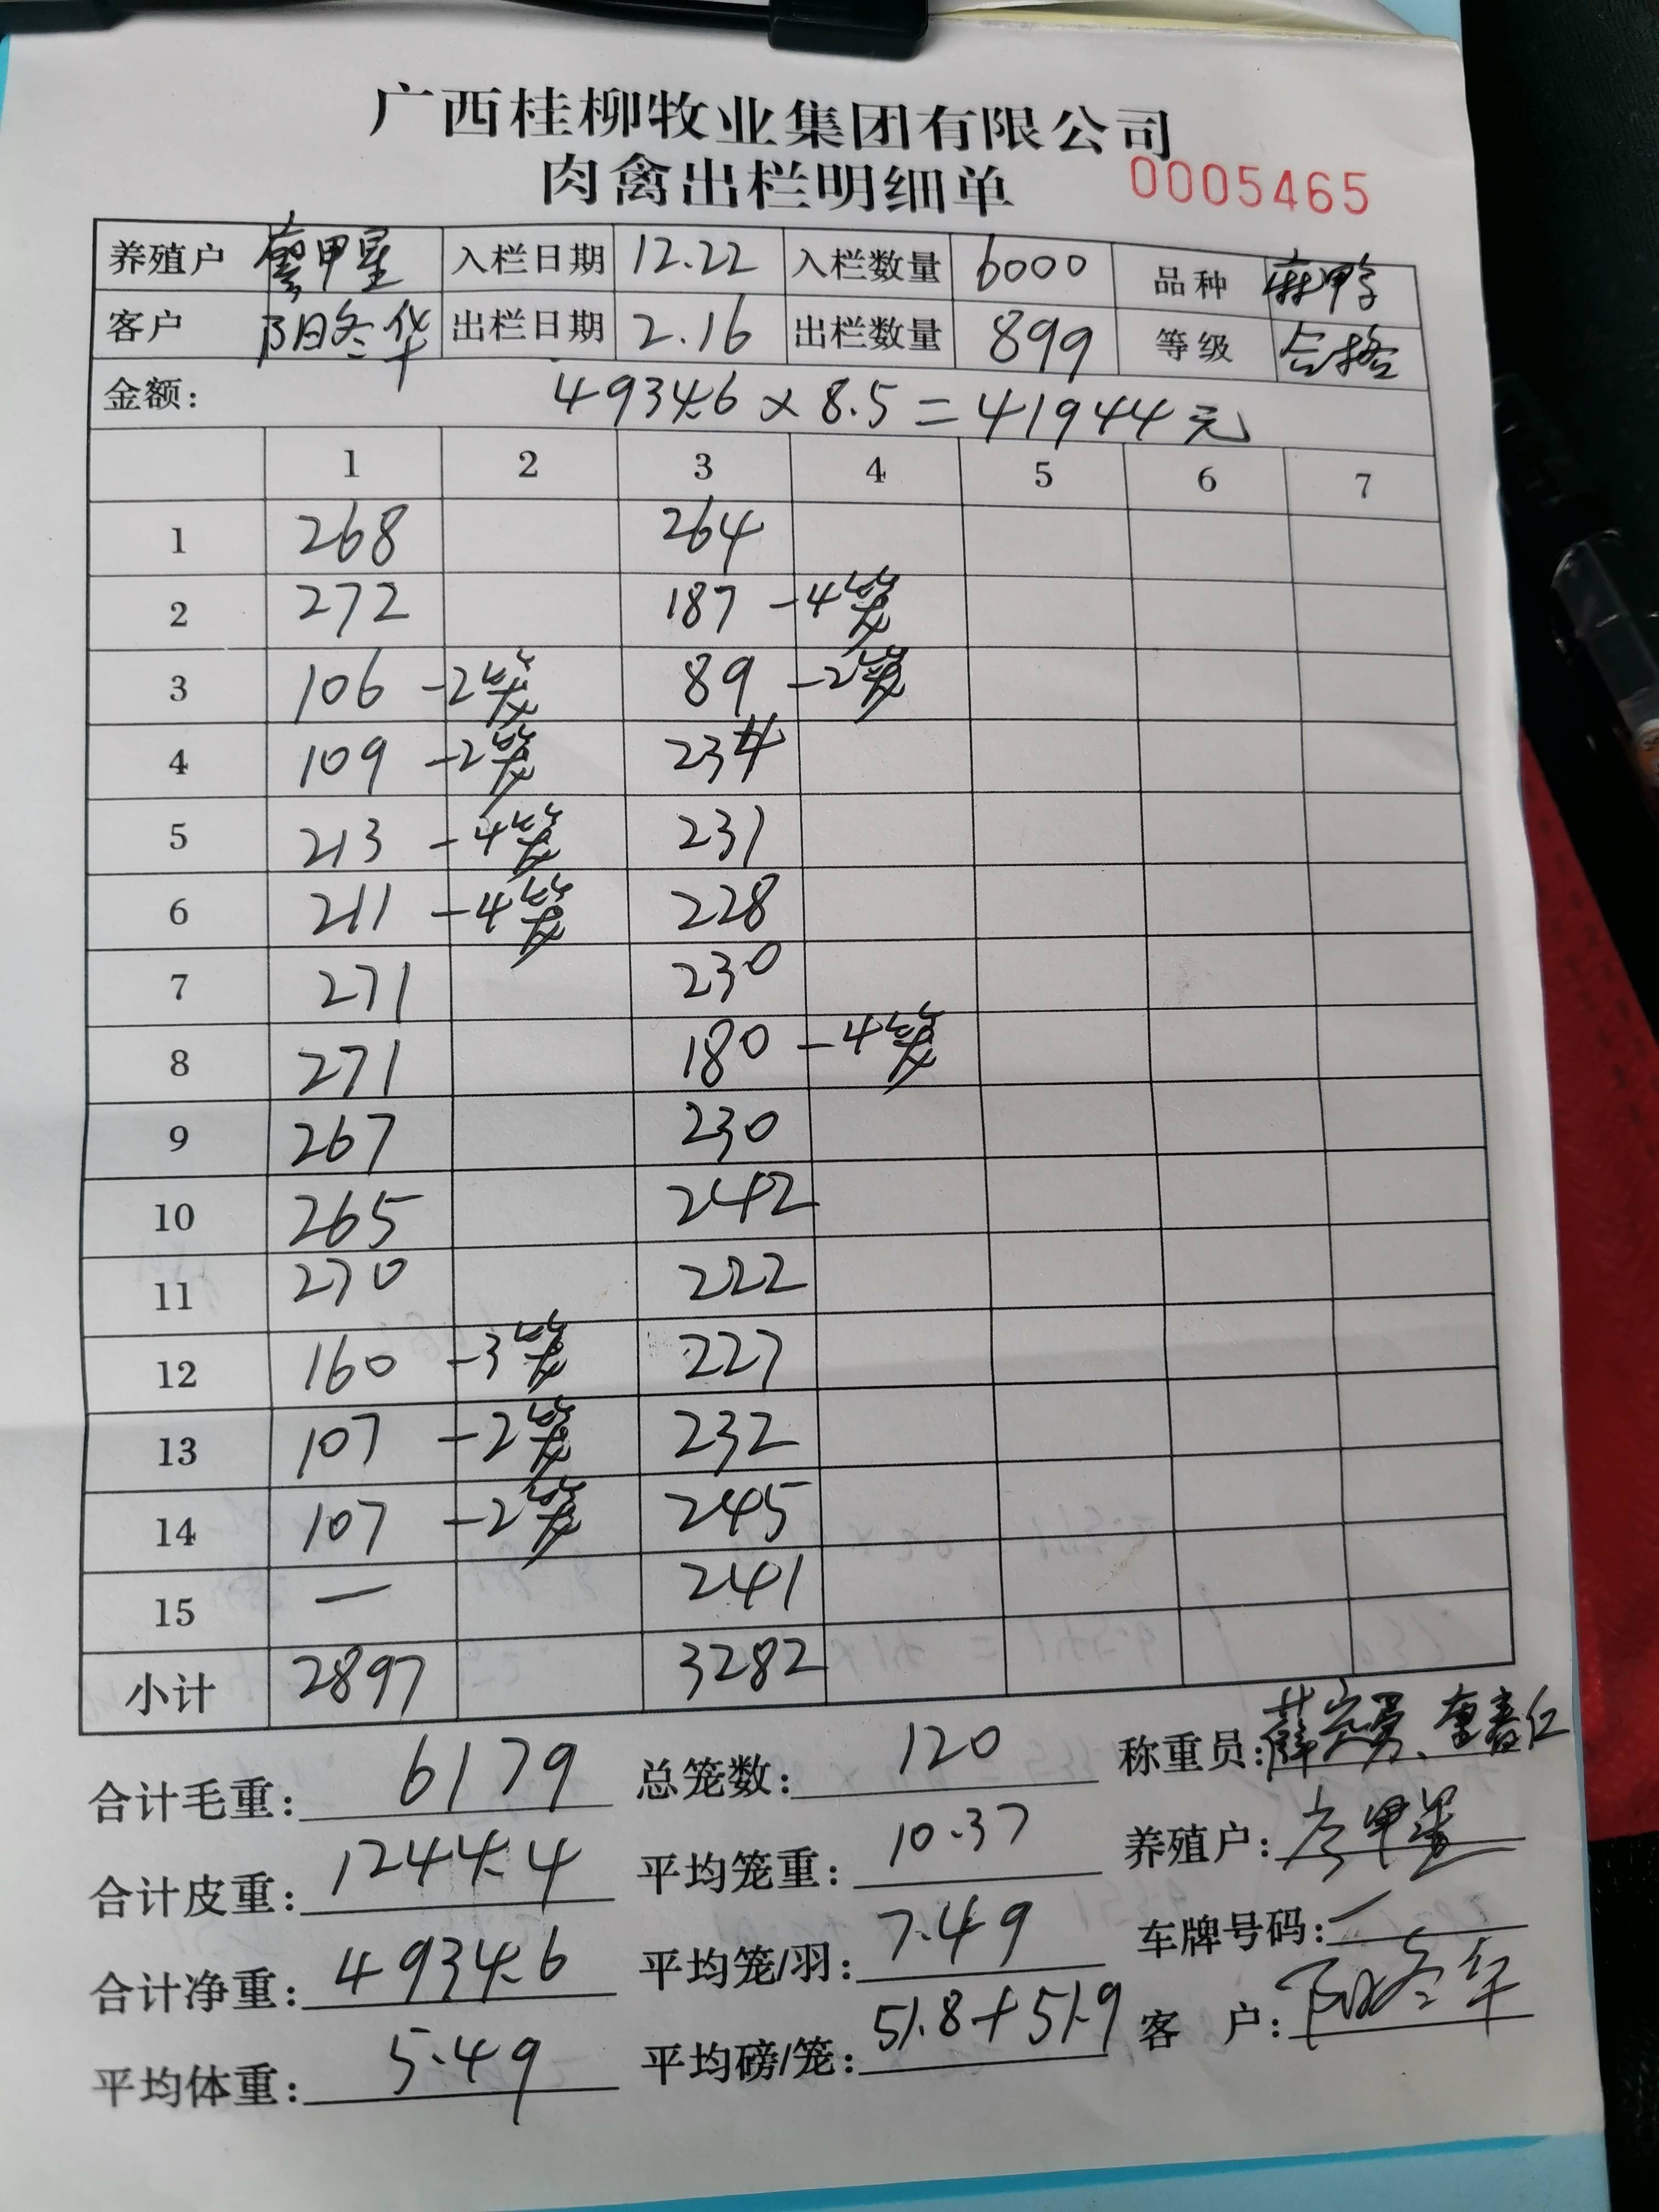 广西桂柳牧业集团有限公司
肉禽出栏明细单 0005465
养殖户 廖甲星 入栏日期 12.22 入栏数量 6000 品种 麻鸭
客户 阳冬华 出栏日期 2.16 出栏数量 899 等级 合格
金额: 4934.6 × 8.5 = 41944元
1 2 3 4 5 6 7
1 268 264
2 272 187 -4笼
3 106 -2笼 89 -2笼
4 109 -2笼 234
5 213 -4笼 231
6 211 -4笼 228
7 271 230
8 271 180 -4笼
9 267 230
10 265 242
11 270 222
12 160 -3笼 227
13 107 -2笼 232
14 107 -2笼 245
15 — 241
小计 2897 3282
合计毛重: 6179 总笼数: 120 称重员:
合计皮重: 1244.4 平均笼重: 10.37 养殖户: 廖甲星
合计净重: 4934.6 平均笼/羽: 7.49 车牌号码: —
平均体重: 5.49 平均磅/笼: 51.8+51.9 客 户: 阳冬华